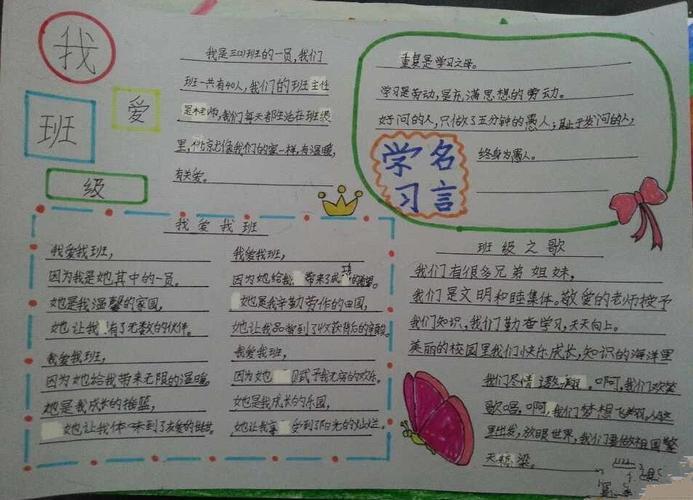 我
爱
班
级
我是三(1)班的一员,我们
班一共有40人,我们的班主任
是老师,我们每天都生活在班级
里,他就像我们的家一样,有温暖,
有关爱。
重复是学习之母。
学习是劳动,是充满思想的劳动。
好问的人,只做了五分钟的愚人;耻于发问的人,
终身为愚人。
学习
名言
我爱我班
我爱我班,
因为我是她其中的一员。
她是我温馨的家园,
她让我有了无数的伙伴。
我爱我班,
因为她给我带来无限的温暖,
她是我成长的摇篮,
她让我体味到了友爱的
我爱我班,
因为她给我带来了的希望。
她是我辛勤劳作的田园,
她让我品尝到了收获后的
我爱我班,
因为她赐予我无穷的欢乐,
她是我成长的乐园,
她让我享受到了阳光的灿烂。
班级之歌
我们有很多兄弟姐妹,
我们是文明和睦集体。敬爱的老师授予
我们知识,我们勤奋学习,天天向上。
美丽的校园里我们快乐成长,知识的海洋里
我们尽情遨翔。啊,我们欢笑
歌唱,啊,我们梦想飞翔,从这
里出发,放眼世界,我们要做祖国擎
天栋梁。